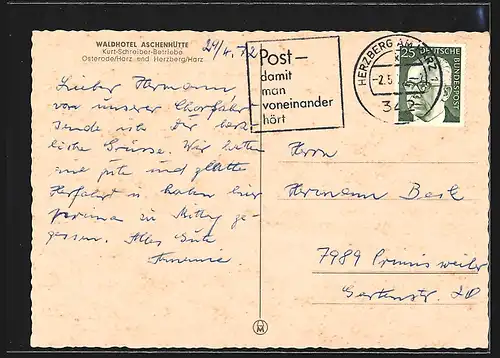 WALDHOTEL ASCHENHÜTTE
Kurt-Schreiber-Betriebe
Osterode/Harz und Herzberg/Harz
29/4. 72
Post-
damit
man
voneinander
hört
HERZBERG AM HARZ 1
-2.5.
342
25
DEUTSCHE
BUNDESPOST
Lieber Hermann,
von unserer Chorfahrt
sende ich Dir herz-
liche Grüsse. Wir hatten
eine gute und glatte
Herfahrt u. haben hier
prima zu Mittag ge-
gessen. Alles Gute
Herrn
Hermann
7989 Primisweiler
Gartenstr.